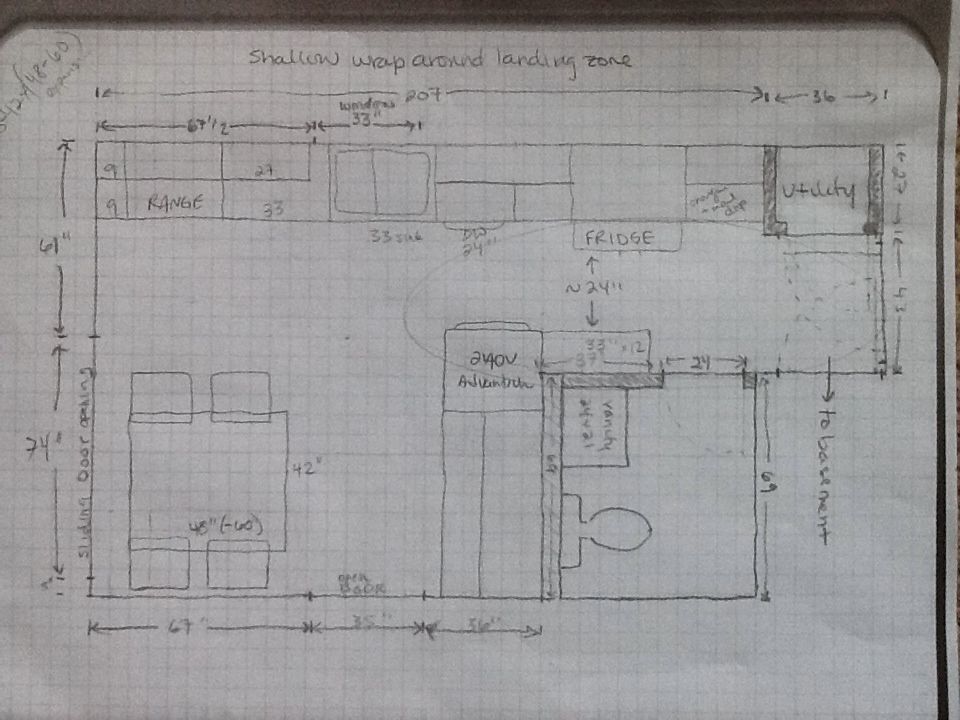 Shallow wrap around landing zone
207
36
window
67 1/2
33"
9
27
9
RANGE
33
utility
27
33 sink
DW
24"
FRIDGE
61"
~24"
43
240V
Advantium
33" x 12
37"
24
vanity
to basement
74"
sliding Door opening
42"
48" (-60)
69
3"
open
67"
35"
36"